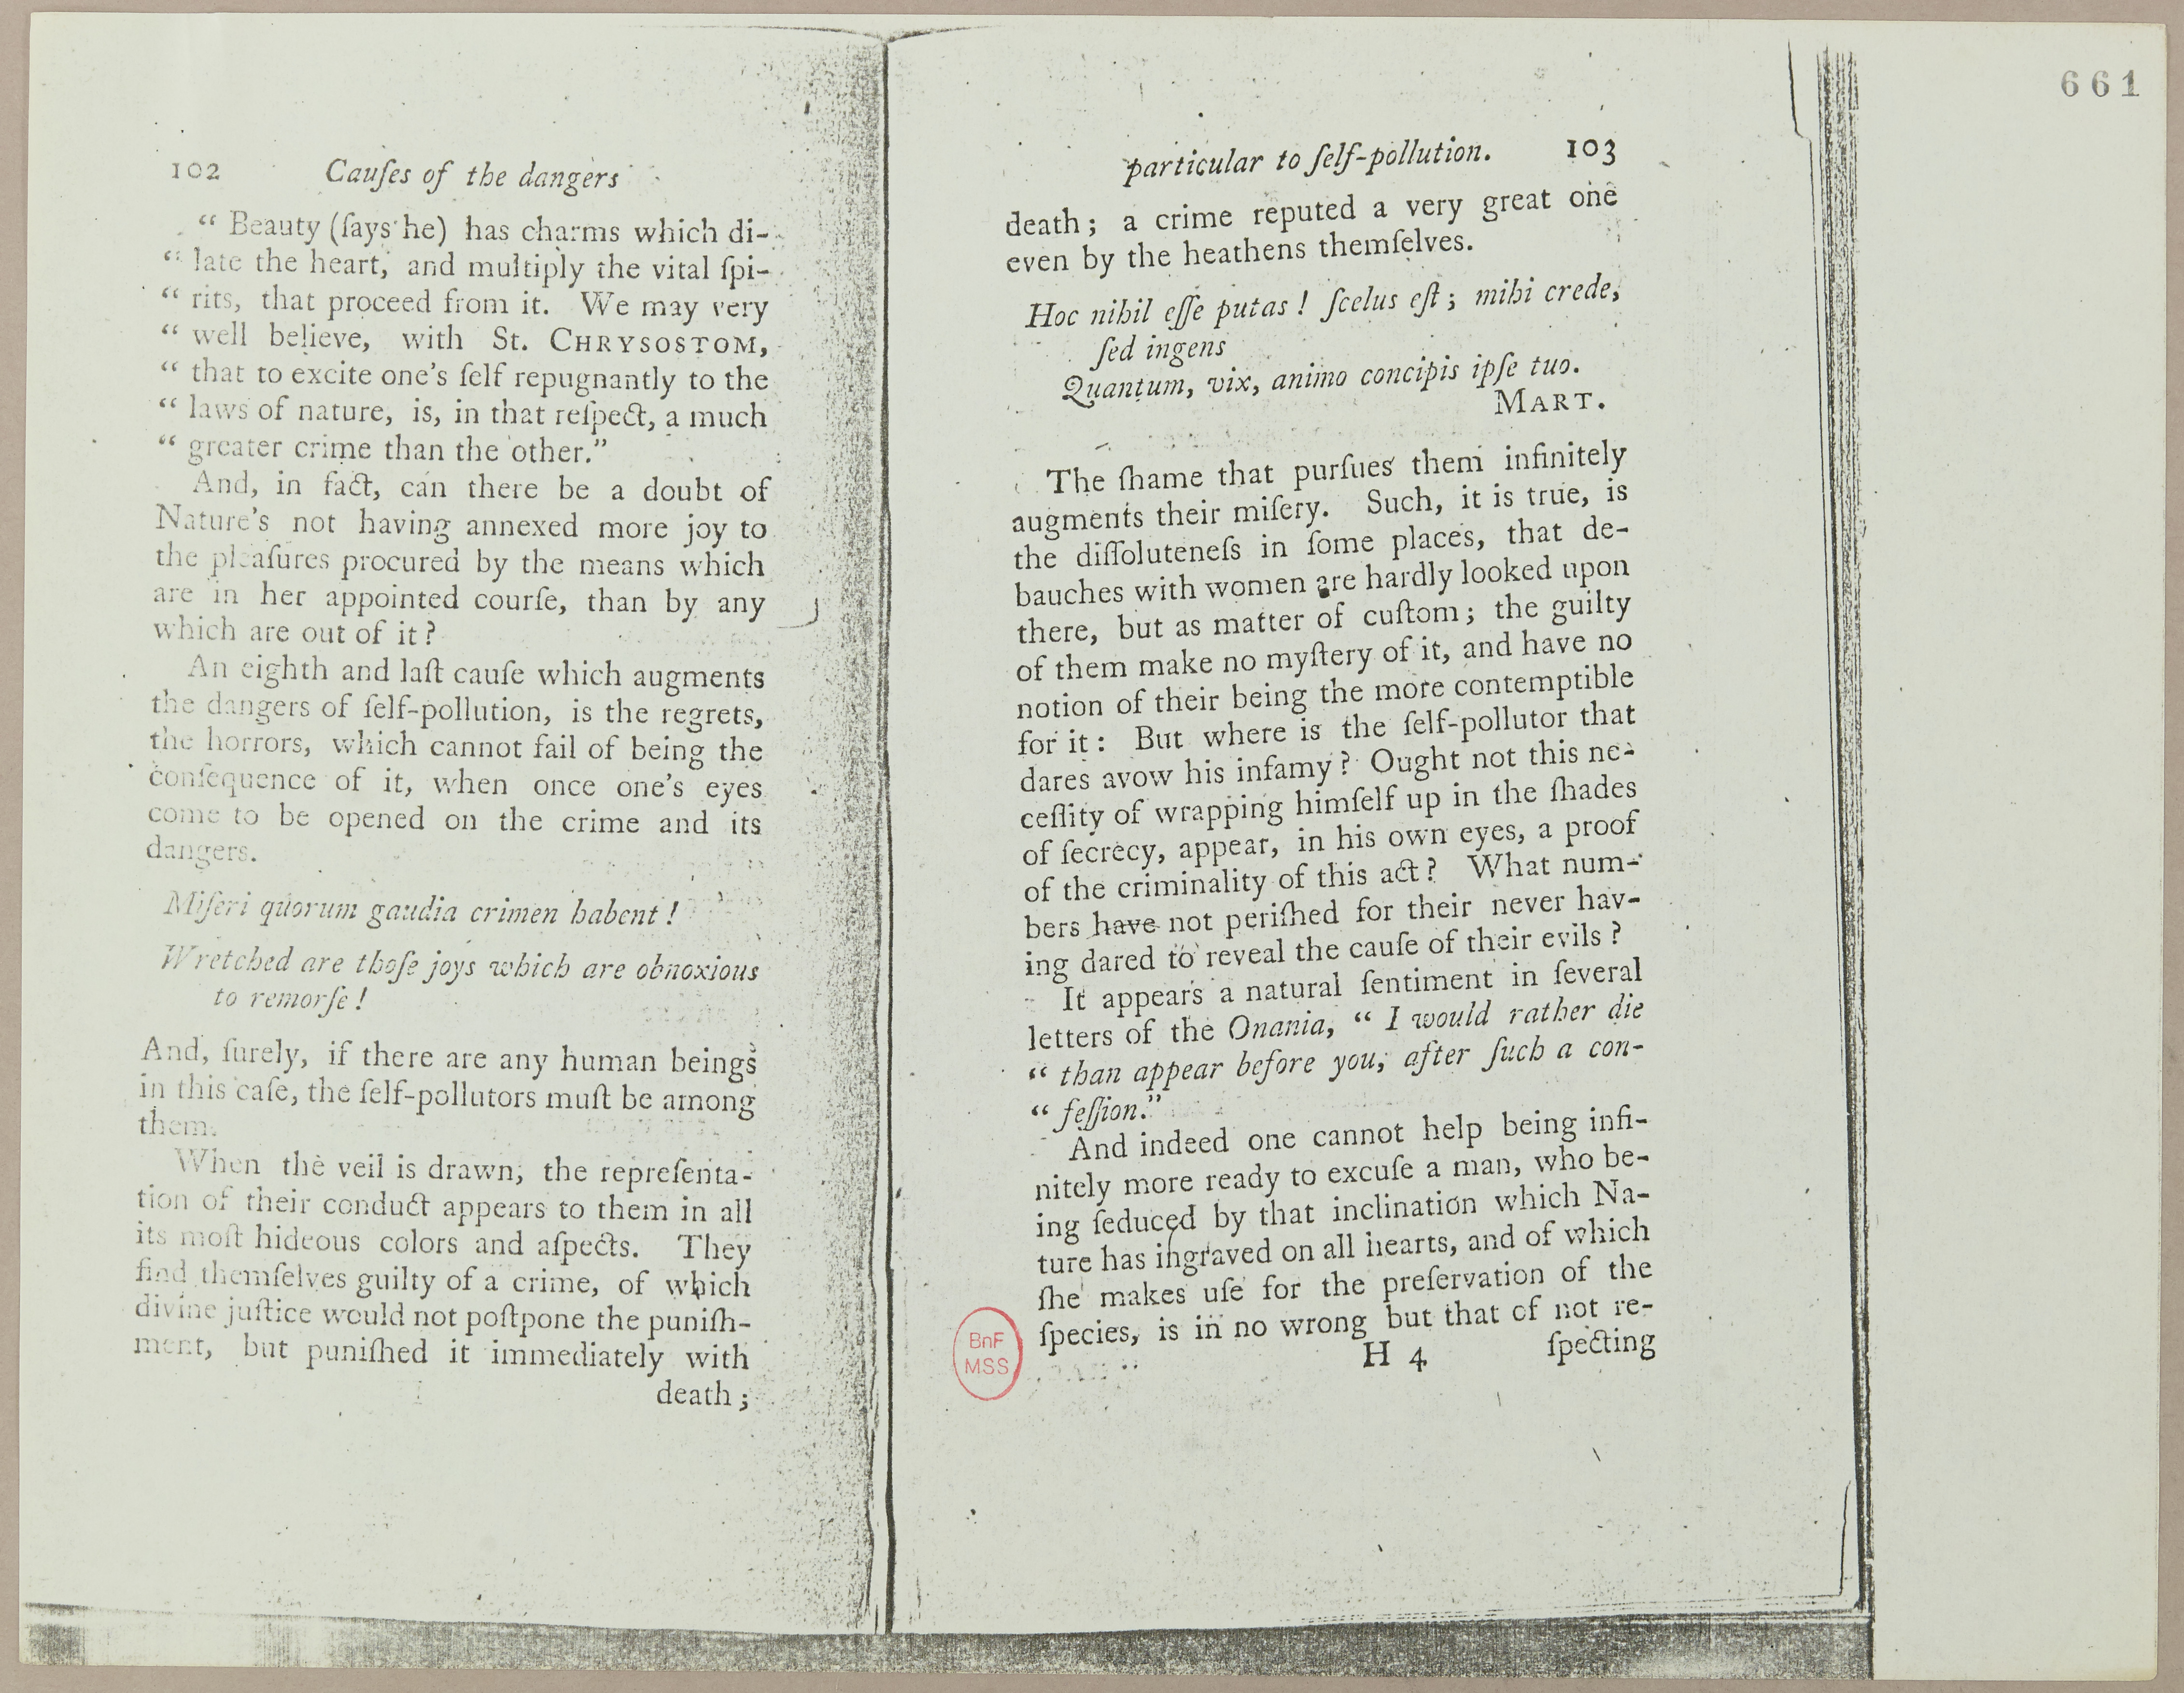 661
102 Cauſes of the dangers
“ Beauty (ſays he) has charms which di-
“ late the heart, and multiply the vital ſpi-
“ rits, that proceed from it. We may very
“ well believe, with St. CHRYSOSTOM,
“ that to excite one's ſelf repugnantly to the
“ laws of nature, is, in that reſpect, a much
“ greater crime than the other.”
And, in fact, can there be a doubt of
Nature's not having annexed more joy to
the pleaſures procured by the means which
are in her appointed courſe, than by any
which are out of it?
An eighth and laſt cauſe which augments
the dangers of ſelf-pollution, is the regrets,
the horrors, which cannot fail of being the
conſequence of it, when once one's eyes
come to be opened on the crime and its
dangers.
Miſeri quorum gaudia crimen habent!
Wretched are thoſe joys which are obnoxious
to remorſe!
And, ſurely, if there are any human beings
in this caſe, the ſelf-pollutors muſt be among
them.
When the veil is drawn, the repreſenta-
tion of their conduct appears to them in all
its moſt hideous colors and aſpects. They
find themſelves guilty of a crime, of which
divine juſtice would not poſtpone the puniſh-
ment, but puniſhed it immediately with
death;
particular to ſelf-pollution. 103
death; a crime reputed a very great one
even by the heathens themſelves.
Hoc nihil eſſe putas! ſcelus eſt; mihi crede,
ſed ingens
Quantum, vix, animo concipis ipſe tuo.
MART.
The ſhame that purſues them infinitely
augments their miſery. Such, it is true, is
the diſſoluteneſs in ſome places, that de-
bauches with women are hardly looked upon
there, but as matter of cuſtom; the guilty
of them make no myſtery of it, and have no
notion of their being the more contemptible
for it: But where is the ſelf-pollutor that
dares avow his infamy? Ought not this ne-
ceſſity of wrapping himſelf up in the ſhades
of ſecrecy, appear, in his own eyes, a proof
of the criminality of this act? What num-
bers have not periſhed for their never hav-
ing dared to reveal the cauſe of their evils?
It appears a natural ſentiment in ſeveral
letters of the Onania, “ I would rather die
“ than appear before you, after ſuch a con-
“ feſſion.”
And indeed one cannot help being infi-
nitely more ready to excuſe a man, who be-
ing ſeduced by that inclination which Na-
ture has ingraved on all hearts, and of which
ſhe makes uſe for the preſervation of the
ſpecies, is in no wrong but that of not re-
H 4 ſpecting
BnF
MSS